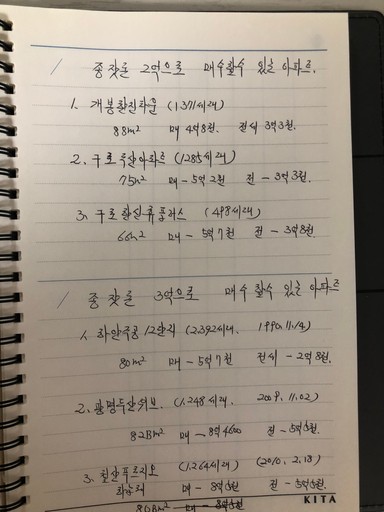 / 종잣돈 2억으로 매수할수 있는 아파트.
1. 개봉한진타운 (1371세대)
88m² 매 4억8천. 전세 3억3천.
2. 구로두산아파트 (1285세대)
75m² 매 - 5억2천 전 - 3억3천.
3. 구로한신휴플러스 (498세대)
66m² 매 - 5억7천 전 - 3억8천.
/ 종잣돈 3억으로 매수할수 있는 아파트
1. 하안주공 12단지 (2,392세대, 1990.11.14)
80m² 매 - 5억7천 전세 - 2억8천.
2. 광명두산위브. (1,248세대, 2009.11.02)
82Bm² 매 - 8억4600 전 - 5억5천.
3. 철산푸르지오 (1,264세대) (2010. 2. 18)
매 - 8억5천 전 - 5억5천.
80Bm² 매 - 8억5천
KITA